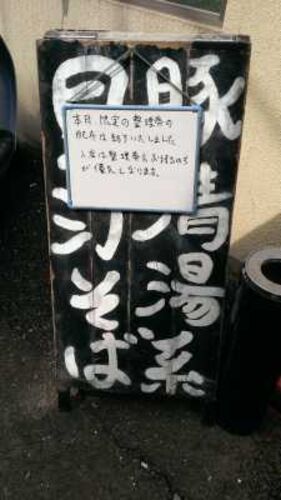 豚清湯系
そば
本日 限定の整理券の
配布は終了いたしました
入店は整理券をお持ちの方
が優先となります。